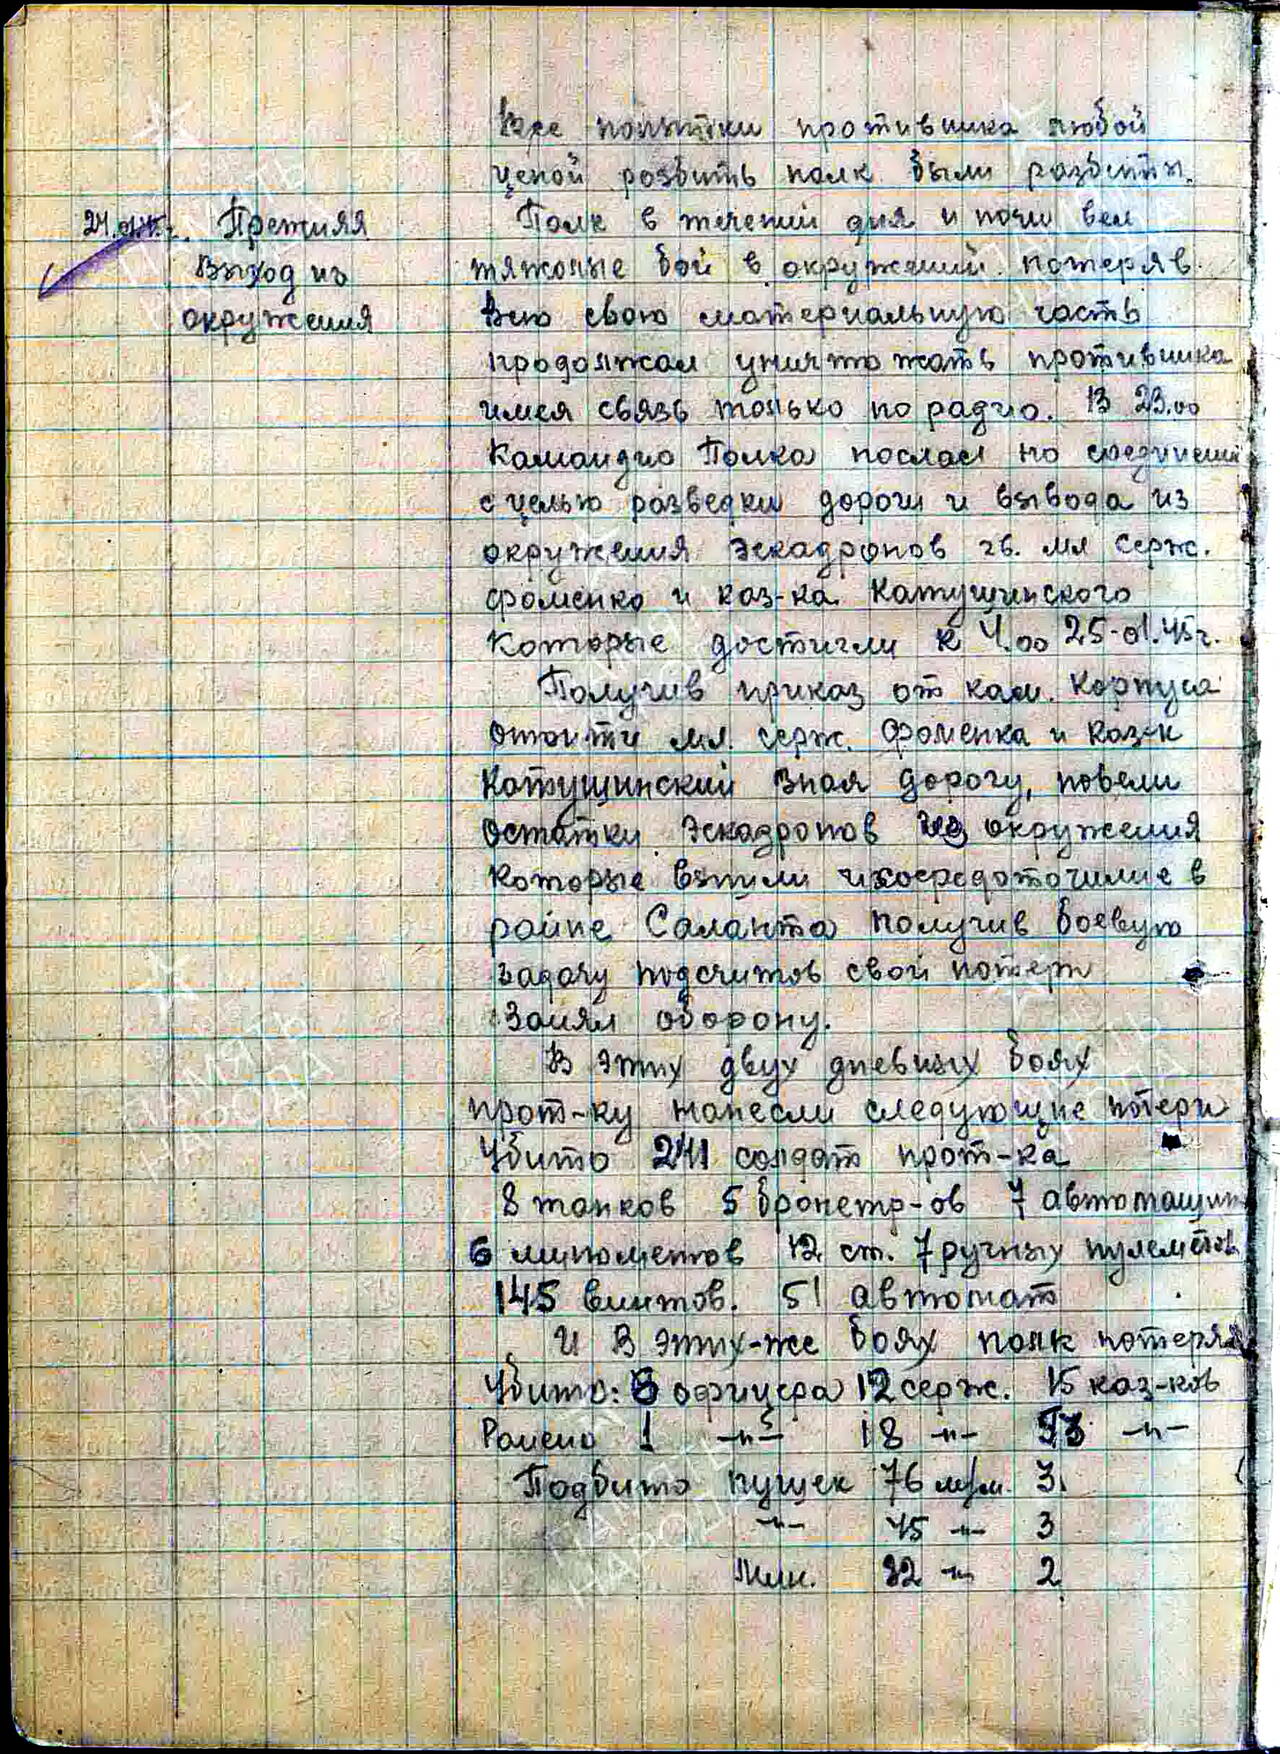 Все попытки противника любой
ценой розбить полк были разбиты.
24.01.45г. Прежняя
Выход из
окружения
Полк в течений дня и ночи вел
тяжолые бой в окружений. потеряв
всю свою материальную часть
продолжал уничтожать противника
имея связь только по радио. В 23.00
Командио Полка послал но соединений
с целью розведки дороги и вывода из
окружения эскадронов гв. мл серж.
фоменко и каз-ка Катущинского
которые достигли к 4.00 25-01.45г.
Получив приказ от ком. Корпуса
отоити мл. серж. Фоменка и каз-к
Катущинский зная дорогу, повели
остатки эскадронов из окружения
которые вышли и сосредоточилие в
ройне Саланта получив боевую
задачу подсчитов свой потерт
Занял оборону.
В этих двух дневных боях
прот-ку нанесли следующие потери
Убито 241 солдат прот-ка
8 танков 5 бронетр-ов 7 автомашин
6 минометов 12 ст. 7 ручных пулеметов
145 винтов. 51 автомат
И В этих-же боях полк потерял
Убито: 6 офицера 12 серж. 15 каз-ков
Ранено 1 -"- 18 -"- 53 -"-
Подбито пушек 76 м/м. 3
-"- 45 -"- 3
Мин. 82 -"- 2
ПАМЯТЬ
НАРОДА